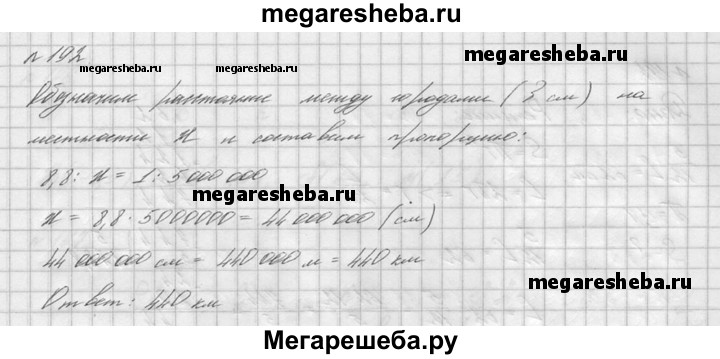 megaresheba.ru
№ 192
megaresheba.ru
megaresheba.ru
megaresheba.ru
Обозначим расстояние между городами (3 см) на
местности x и составим пропорцию:
8,8 : x = 1 : 5 000 000
megaresheba.ru
x = 8,8 · 5000000 = 44 000 000 (см)
44 000 000 см = 440 000 м = 440 км
megaresheba.ru
Ответ: 440 км
Мегарешеба.ру